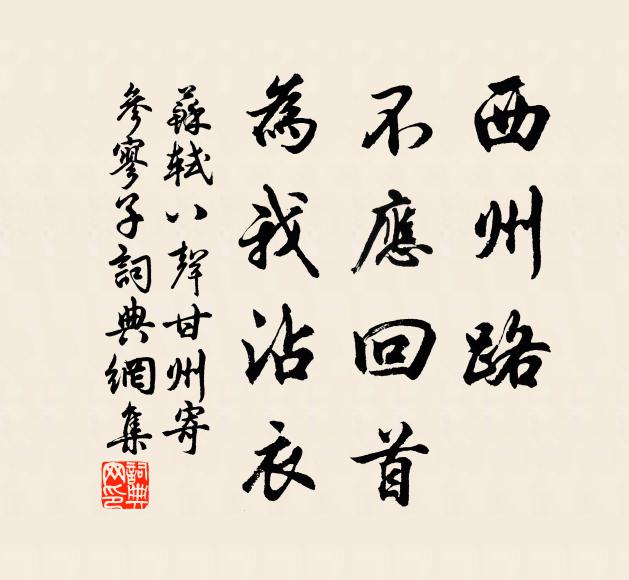 西州路
不應回首
為我沾衣
蘇軾八聲甘州寄
參寥子詞典網集
詞典网印